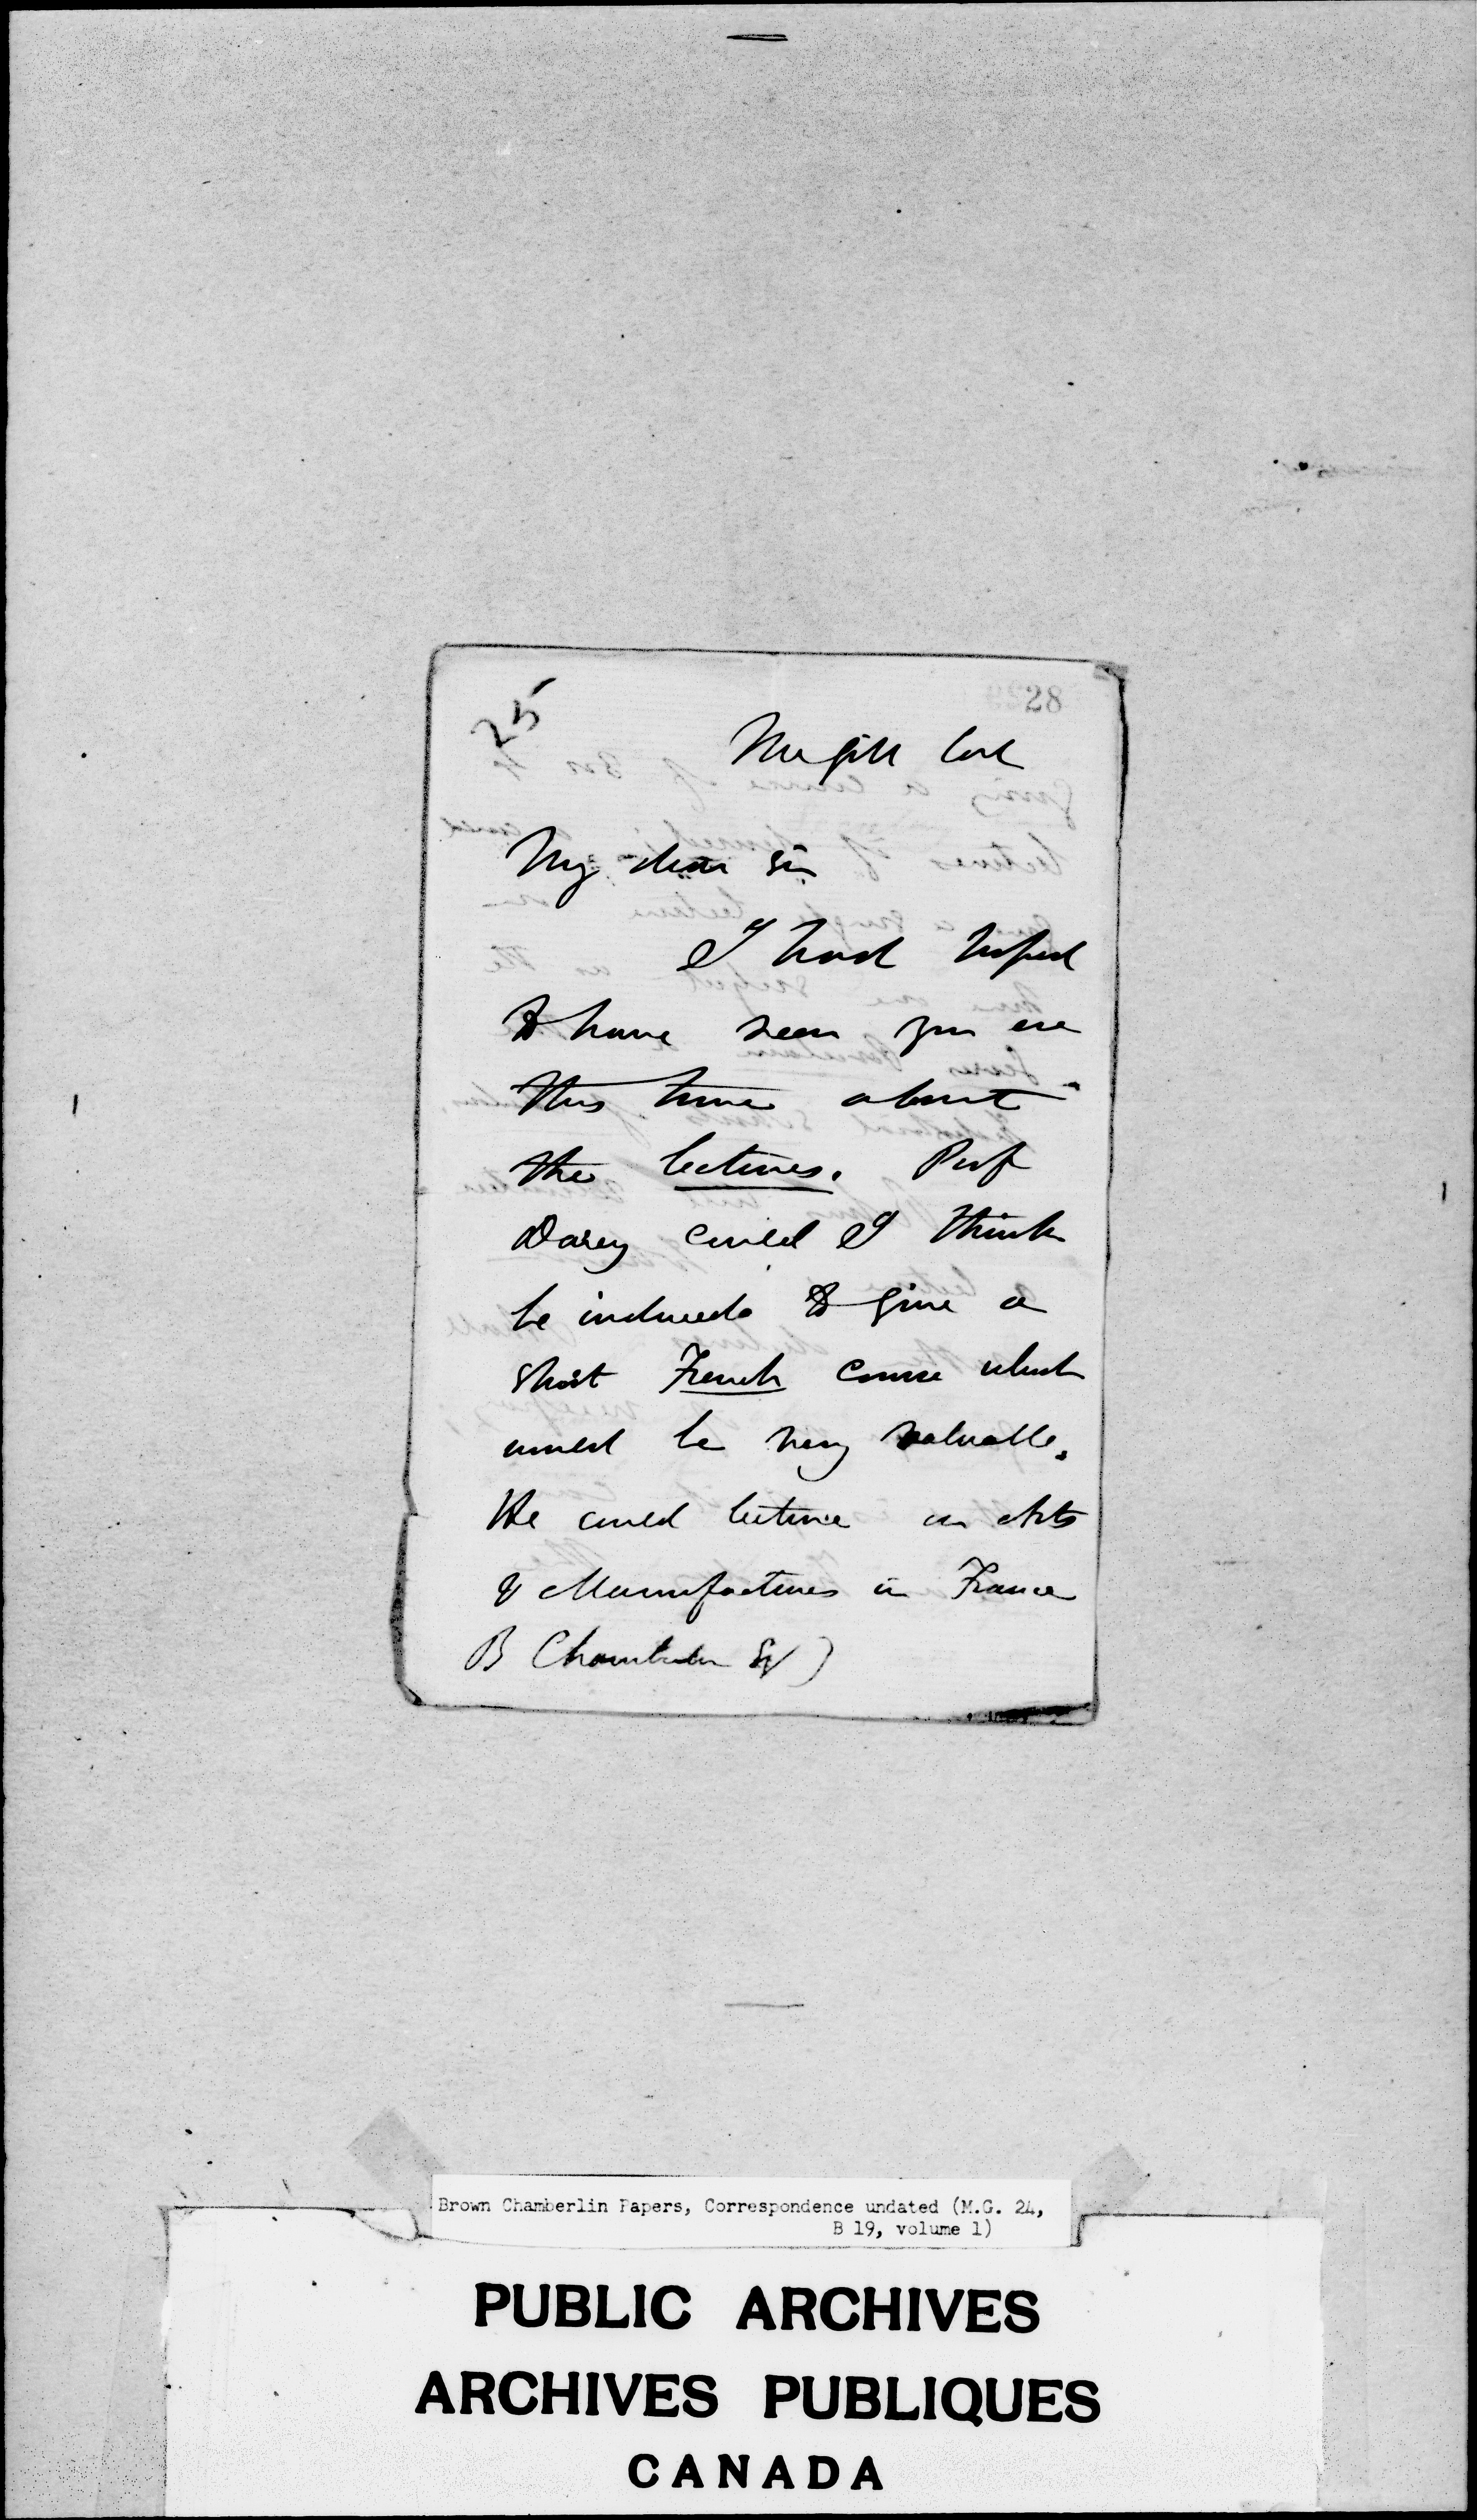 25
28
McGill Col
My dear Sir
I had hoped
to have seen you ere
this time about
the lectures. Prof
Darey could I think
be induced to give a
short French course which
would be very valuable.
He could lecture on Arts
& Manufactures in France
B Chamberlin Esq )
Brown Chamberlin Papers, Correspondence undated (M.G. 24,
B 19, volume 1)
PUBLIC ARCHIVES
ARCHIVES PUBLIQUES
CANADA